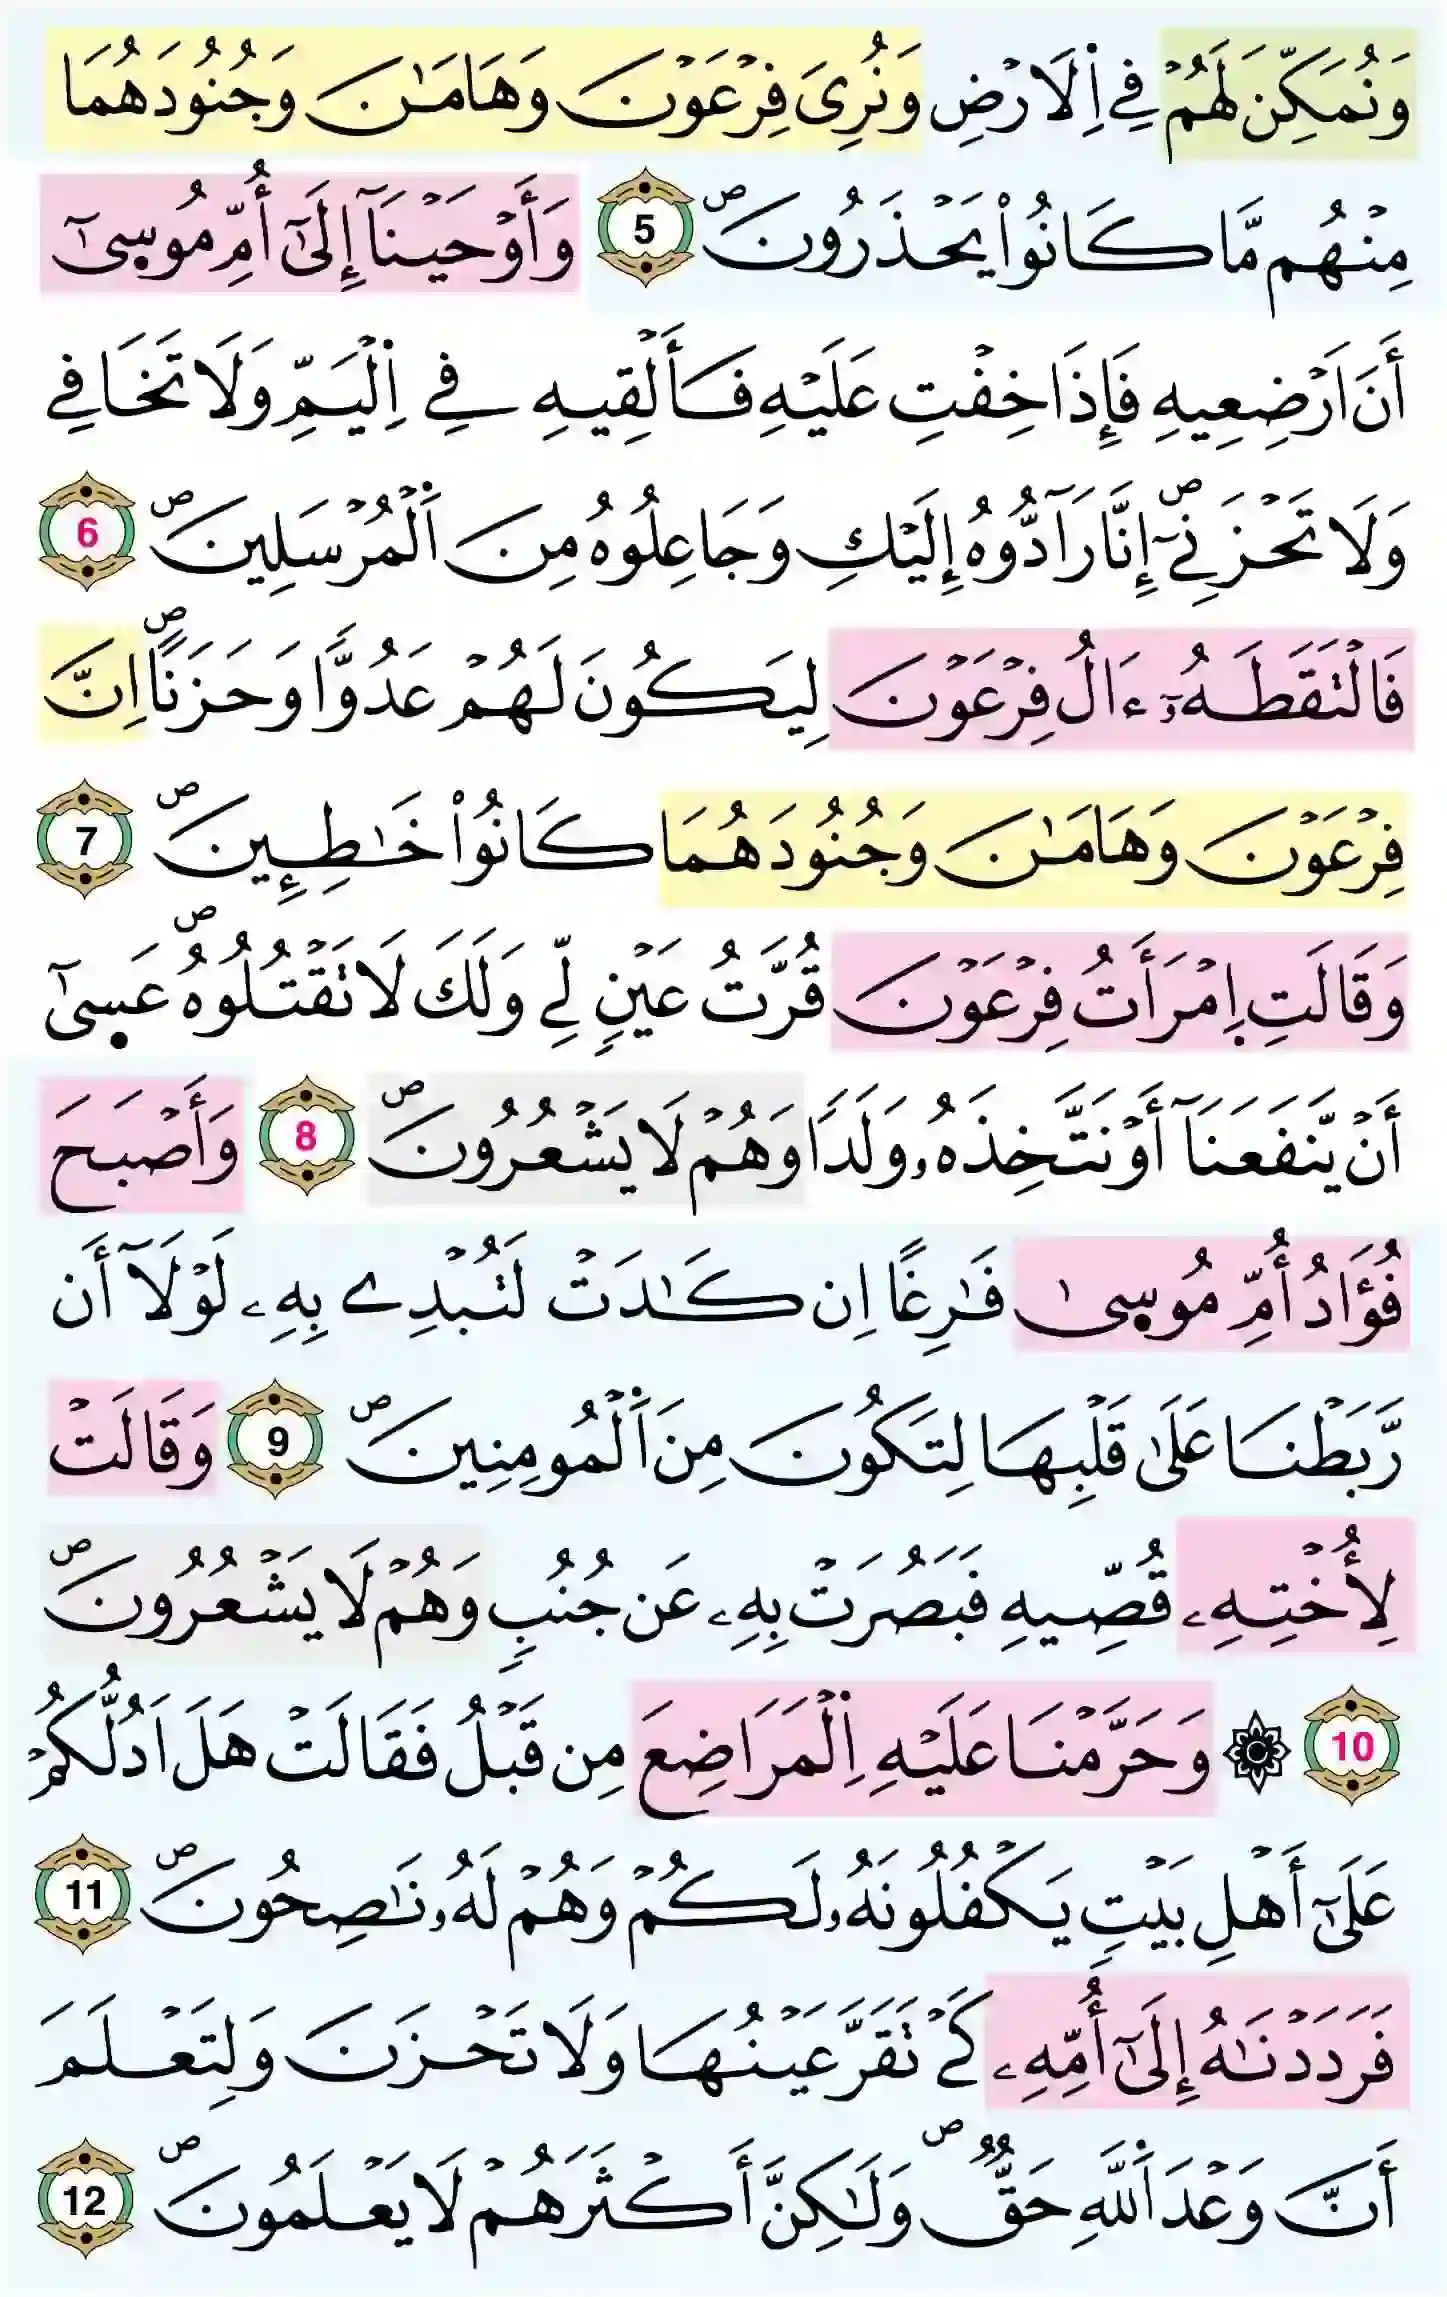 وَنُمَكِّن لَهُمْ فِے اِ۬لَارْضِ وَنُرِيَ فِرْعَوْنَ وَهَامَٰنَ وَجُنُودَهُمَا
مِنْهُم مَّا كَانُواْ يَحْذَرُونَۖ 5 وَأَوْحَيْنَآ إِلَىٰٓ أُمِّ مُوس۪ىٰٓ
أَنَ اَرْضِعِيهِ فَإِذَا خِفْتِ عَلَيْهِ فَأَلْقِيهِ فِے اِ۬لْيَمِّ وَلَا تَخَافِے
وَلَا تَحْزَنِےٓۖ إِنَّا رَآدُّوهُ إِلَيْكِ وَجَاعِلُوهُ مِنَ اَ۬لْمُرْسَلِينَۖ 6
فَالْتَقَطَهُۥٓ ءَالُ فِرْعَوْنَ لِيَكُونَ لَهُمْ عَدُوّٗا وَحَزَناًۖ اِنَّ
فِرْعَوْنَ وَهَامَٰنَ وَجُنُودَهُمَا كَانُواْ خَٰطِـِٕينَۖ 7
وَقَالَتِ اِ۪مْرَأَتُ فِرْعَوْنَ قُرَّتُ عَيْنٖ لِّے وَلَكَ لَا تَقْتُلُوهُۖ عَس۪ىٰٓ
أَنْ يَّنفَعَنَآ أَوْ نَتَّخِذَهُۥ وَلَداٗ وَهُمْ لَا يَشْعُرُونَۖ 8 وَأَصْبَحَ
فُؤَادُ أُمِّ مُوس۪ىٰ فَٰرِغاً اِن كَٰدَتْ لَتُبْدِے بِهِۦ لَوْلَآ أَن
رَّبَطْنَا عَلَىٰ قَلْبِهَا لِتَكُونَ مِنَ اَ۬لْمُومِنِينَۖ 9 وَقَالَتْ
لِأُخْتِهِۦ قُصِّيهِ فَبَصُرَتْ بِهِۦ عَن جُنُبٖ وَهُمْ لَا يَشْعُرُونَۖ
10 ۞ وَحَرَّمْنَا عَلَيْهِ اِ۬لْمَرَاضِعَ مِن قَبْلُ فَقَالَتْ هَلَ اَدُلُّكُمْ
عَلَىٰٓ أَهْلِ بَيْتٖ يَكْفُلُونَهُۥ لَكُمْ وَهُمْ لَهُۥ نَٰصِحُونَۖ 11
فَرَدَدْنَٰهُ إِلَىٰٓ أُمِّهِۦ كَےْ تَقَرَّ عَيْنُهَا وَلَا تَحْزَنَ وَلِتَعْلَمَ
أَنَّ وَعْدَ اَ۬للَّهِ حَقّٞۖ وَلَٰكِنَّ أَكْثَرَهُمْ لَا يَعْلَمُونَۖ 12